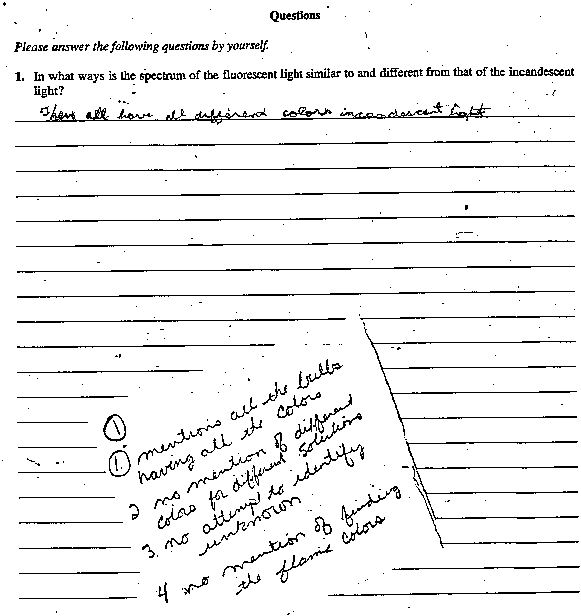 Questions
Please answer the following questions by yourself.
1. In what ways is the spectrum of the fluorescent light similar to and different from that of the incandescent
light?
They all have all different colors incandescent light
1
1. mentions all the bulbs
having all the colors
2 no mention of different
colors for different solutions
3. no attempt to identify
unknown
4 no mention of finding
the flame colors